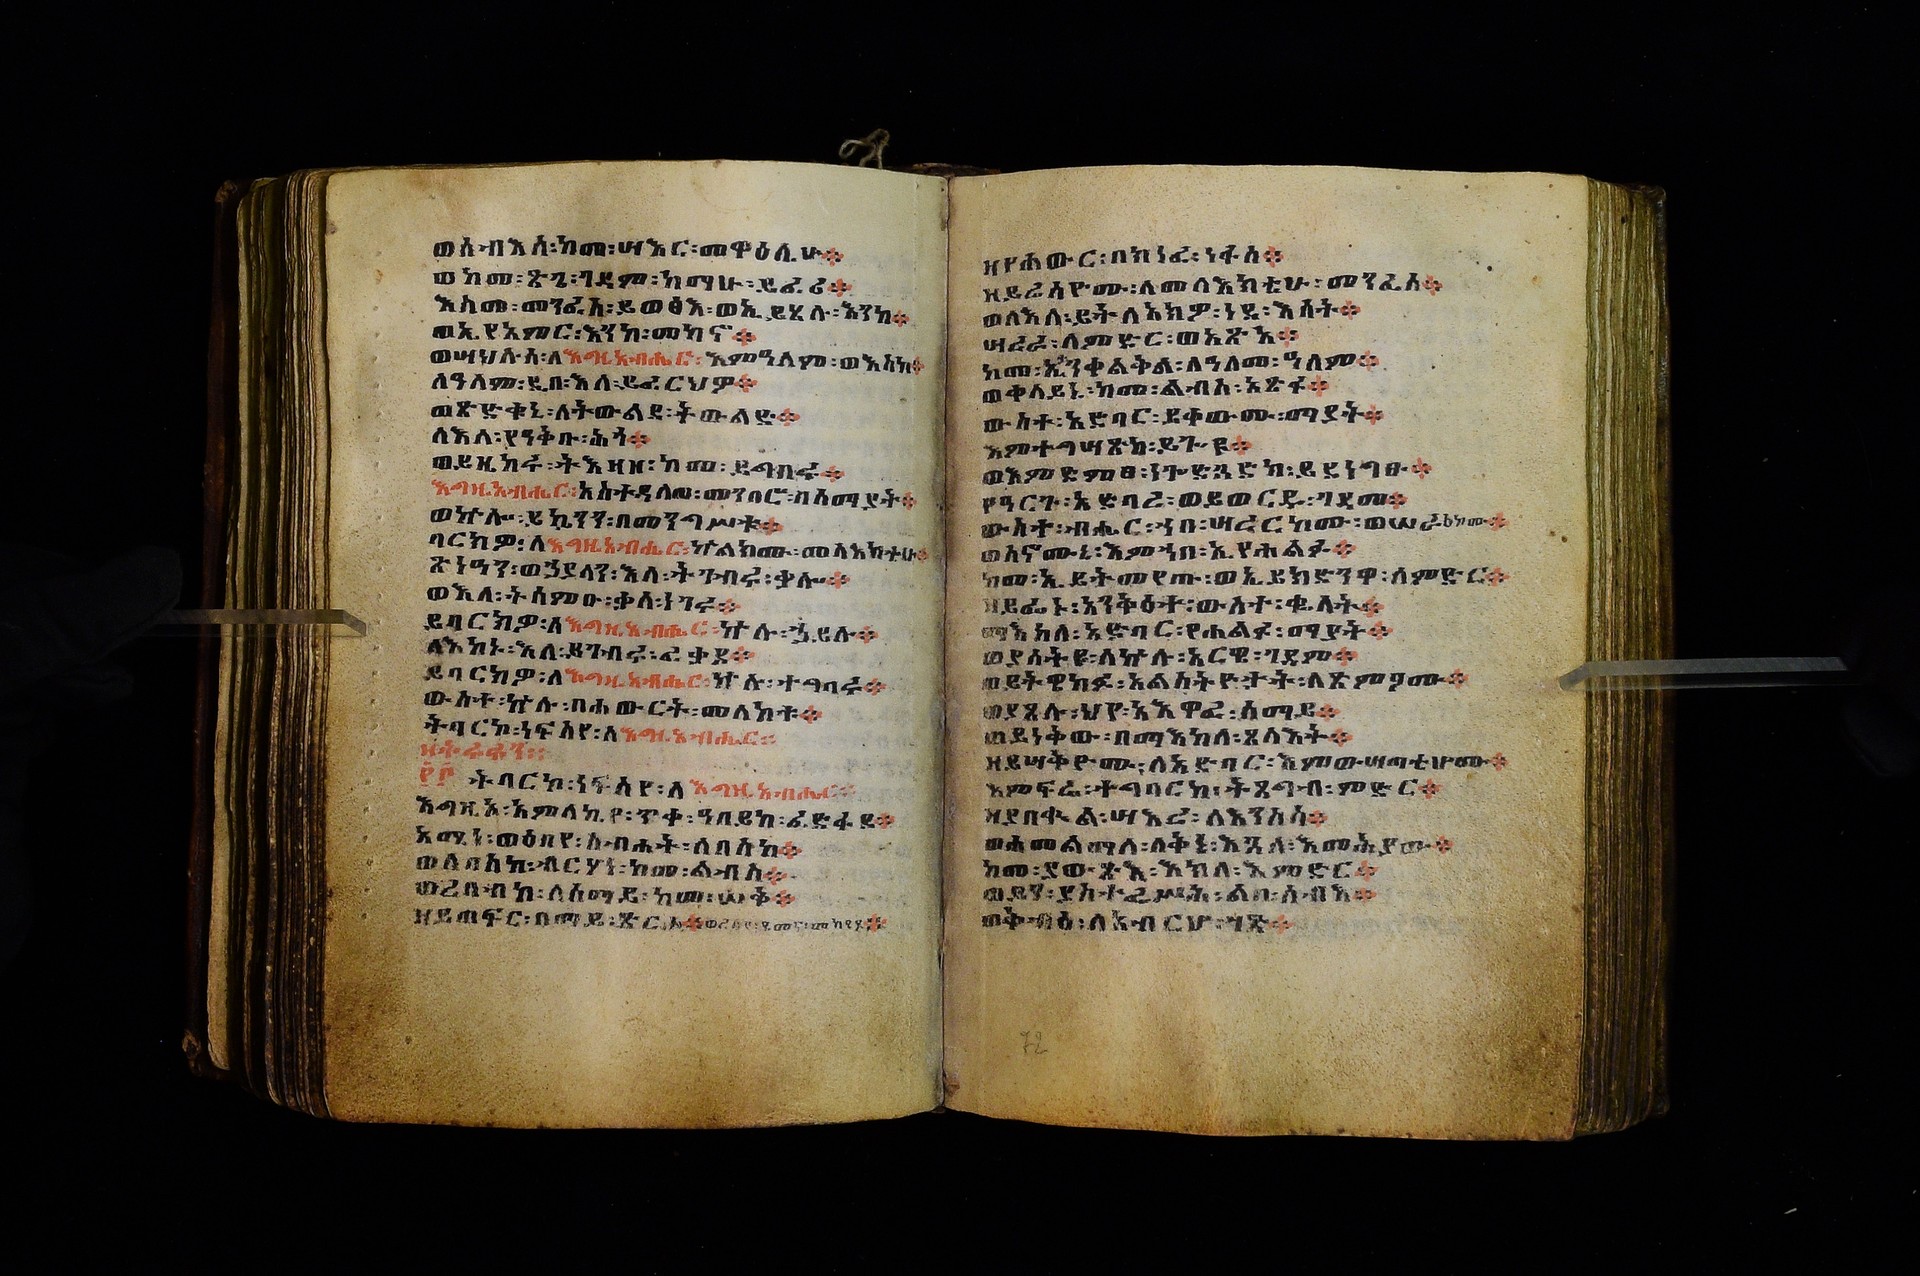 ወሰብእሰ፡ከመ፡ሣእር፡መዋዕሊሁ፨
ወከመ፡ጽጌ፡ገዳም፡ከማሁ፡ይፈሪ፨
እስመ፡መንፈስ፡ይወፅእ፡ወኢይሄሉ፡እንከ፨
ወኢየአምር፡እንከ፡መካኖ፨
ወሣህሉሰ፡ለእግዚአብሔር፡እምዓለም፡ወእስከ፨
ለዓለም፡ዲበ፡እለ፡ይፈርህዎ፨
ወጽድቁኒ፡ለትውልደ፡ትውልድ፨
ለእለ፡የዓቅቡ፡ሕጎ፨
ወይዚከሩ፡ትእዛዞ፡ከመ፡ይግበሩ፨
እግዚአብሔር፡አስተዳለወ፡መንበሮ፡በሰማያት፨
ወኵሎ፡ይኴንን፡በመንግሥቱ፨
ባርክዎ፡ለእግዚአብሔር፡ኵልክሙ፡መላእክቲሁ፨
ጽኑዓን፡ወኃያላን፡እለ፡ትገብሩ፡ቃሎ፨
ወእለ፡ትሰምዑ፡ቃለ፡ነገሩ፨
ይባርክዎ፡ለእግዚአብሔር፡ኵሉ፡ኃይሉ፨
ላእኩ፡እለ፡ይገብሩ፡ፈቃዶ፨
ይባርክዎ፡ለእግዚአብሔር፡ኵሉ፡ተግባሩ፨
ውስተ፡ኵሉ፡በሐውርት፡መለኮቱ፨
ትባርኮ፡ነፍስየ፡ለእግዚአብሔር፨
፻፫ ትባርኮ፡ነፍስየ፡ለእግዚአብሔር፨
እግዚእ፡አምላኪየ፡ጥቀ፡ዓበይከ፡ፈድፋደ፨
አሚነ፡ወዕበየ፡ስብሐት፡ለበስከ፨
ወለበስከ፡ብርሃነ፡ከመ፡ልብስ፨
ወረበብከ፡ለሰማይ፡ከመ፡ሠቅ፨
ዘይጠፍር፡በማይ፡ጽርሖ፨ወረሰየ፡ደመና፡መከየዶ፨
ዘየሐውር፡በክነፈ፡ነፋስ፨
ዘይሬስዮሙ፡ለመላእክቲሁ፡መንፈሰ፨
ወለእለ፡ይትለአክዎ፡ነደ፡እሳት፨
ሣረራ፡ለምድር፡ወአጽንአ፨
ከመ፡ኢታንቀልቅል፡ለዓለመ፡ዓለም፨
ወቀላይኒ፡ከመ፡ልብስ፡አጽፋ፨
ውስተ፡አድባር፡ይቀውሙ፡ማያት፨
እምተግሣጽከ፡ይጐዩ፨
ወእምድምፀ፡ነጐድጓድከ፡ይደነግፁ፨
የዓርጉ፡አድባረ፡ወይወርዱ፡ገዳመ፨
ውስተ፡ብሔር፡ኀበ፡ሣረርከሙ፡ወሠራዕከሙ፨
ወሰኖሙኒ፡እምኀበ፡ኢየሐልፉ፨
ከመ፡ኢይትመየጡ፡ወኢይክድንዋ፡ለምድር፨
ዘይፌኑ፡አንቅዕተ፡ውስተ፡ቈላት፨
ማእከለ፡አድባር፡የሐልፉ፡ማያት፨
ወያሰትዩ፡ለኵሉ፡አርዌ፡ገዳም፨
ወይትዌከፉ፡አልስትዮታት፡ለጽምዖሙ፨
ወያጸሉ፡ህየ፡አእዋፈ፡ሰማይ፨
ወይነቅው፡በማእከለ፡ጸላእት፨
ዘይሣቅዮሙ፡ለአድባር፡እምውሣጢቲሆሙ፨
እምፍሬ፡ተግባርከ፡ትጸግብ፡ምድር፨
ዘያበቍል፡ሣእረ፡ለእንስሳ፨
ወሐመልማለ፡ለቅኔ፡እጓለ፡እመሕያው፨
ከመ፡ያውጽእ፡እክለ፡እምድር፨
ወወይን፡ያስተፌሥሕ፡ልበ፡ሰብእ፨
ወቅብዕ፡ለአብርሆ፡ገጽ፨
72